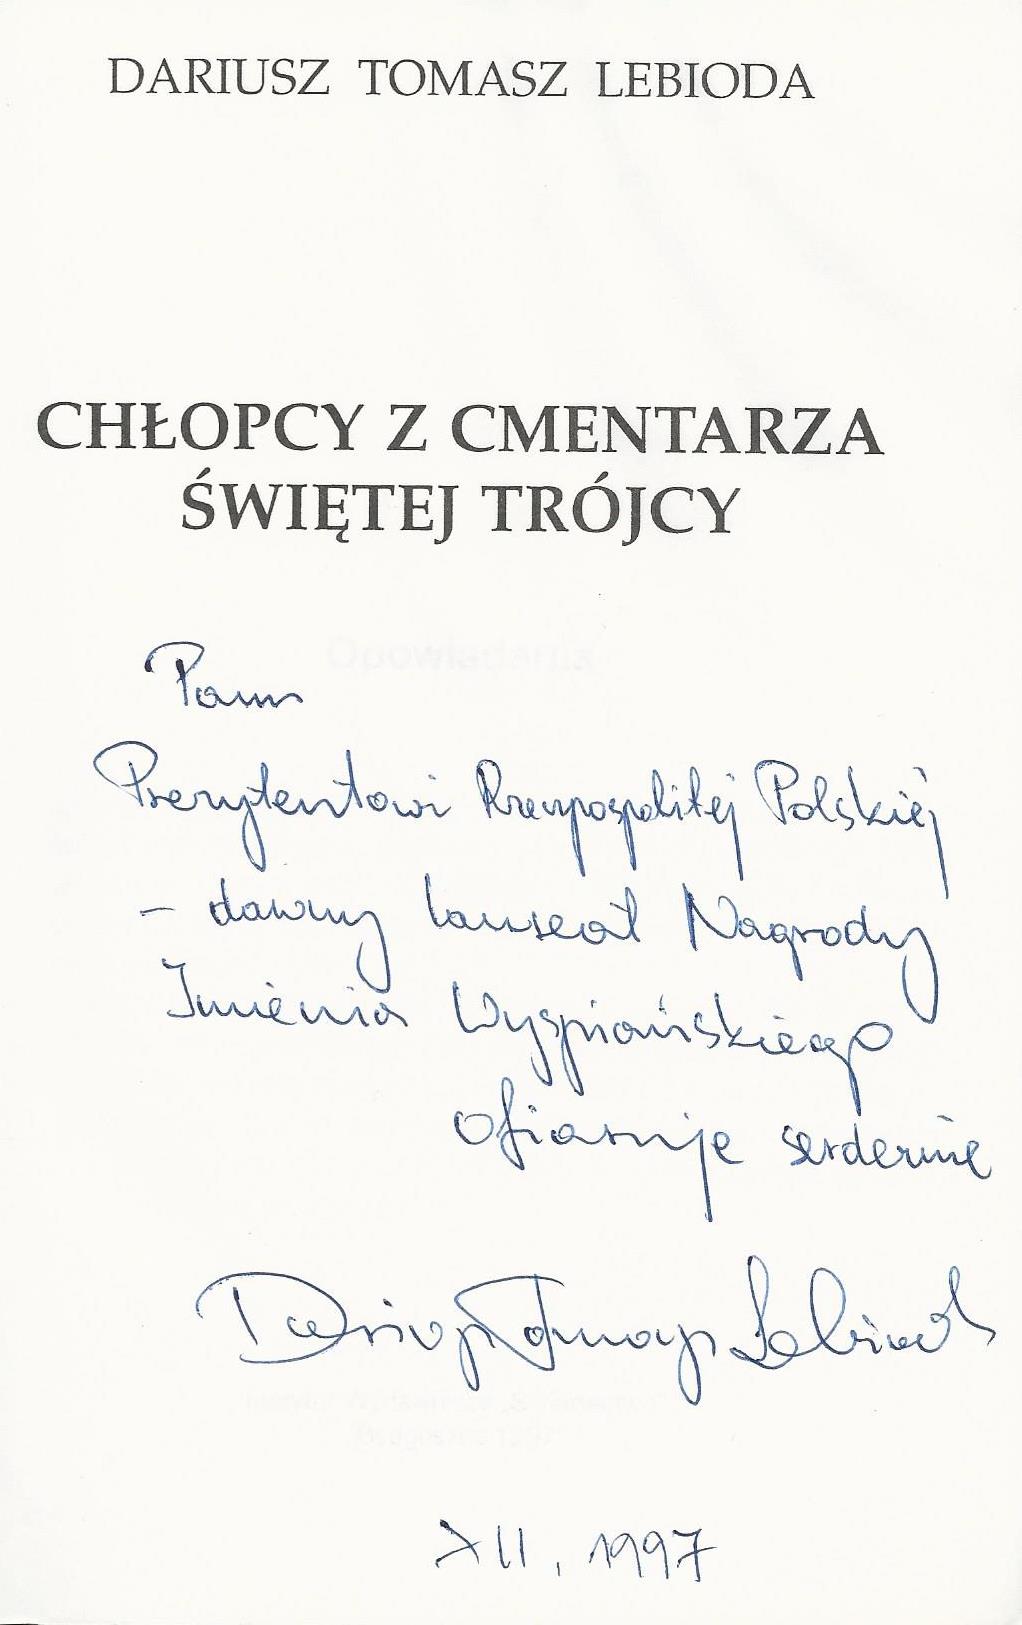 DARIUSZ TOMASZ LEBIODA
CHŁOPCY Z CMENTARZA
ŚWIĘTEJ TRÓJCY
Opowiadania
Panu
Prezydentowi Rzeczpospolitej Polskiej
– dawny laureat Nagrody
Imienia Wyspiańskiego
ofiaruje serdecznie
Dariusz Tomasz Lebioda
XII. 1997